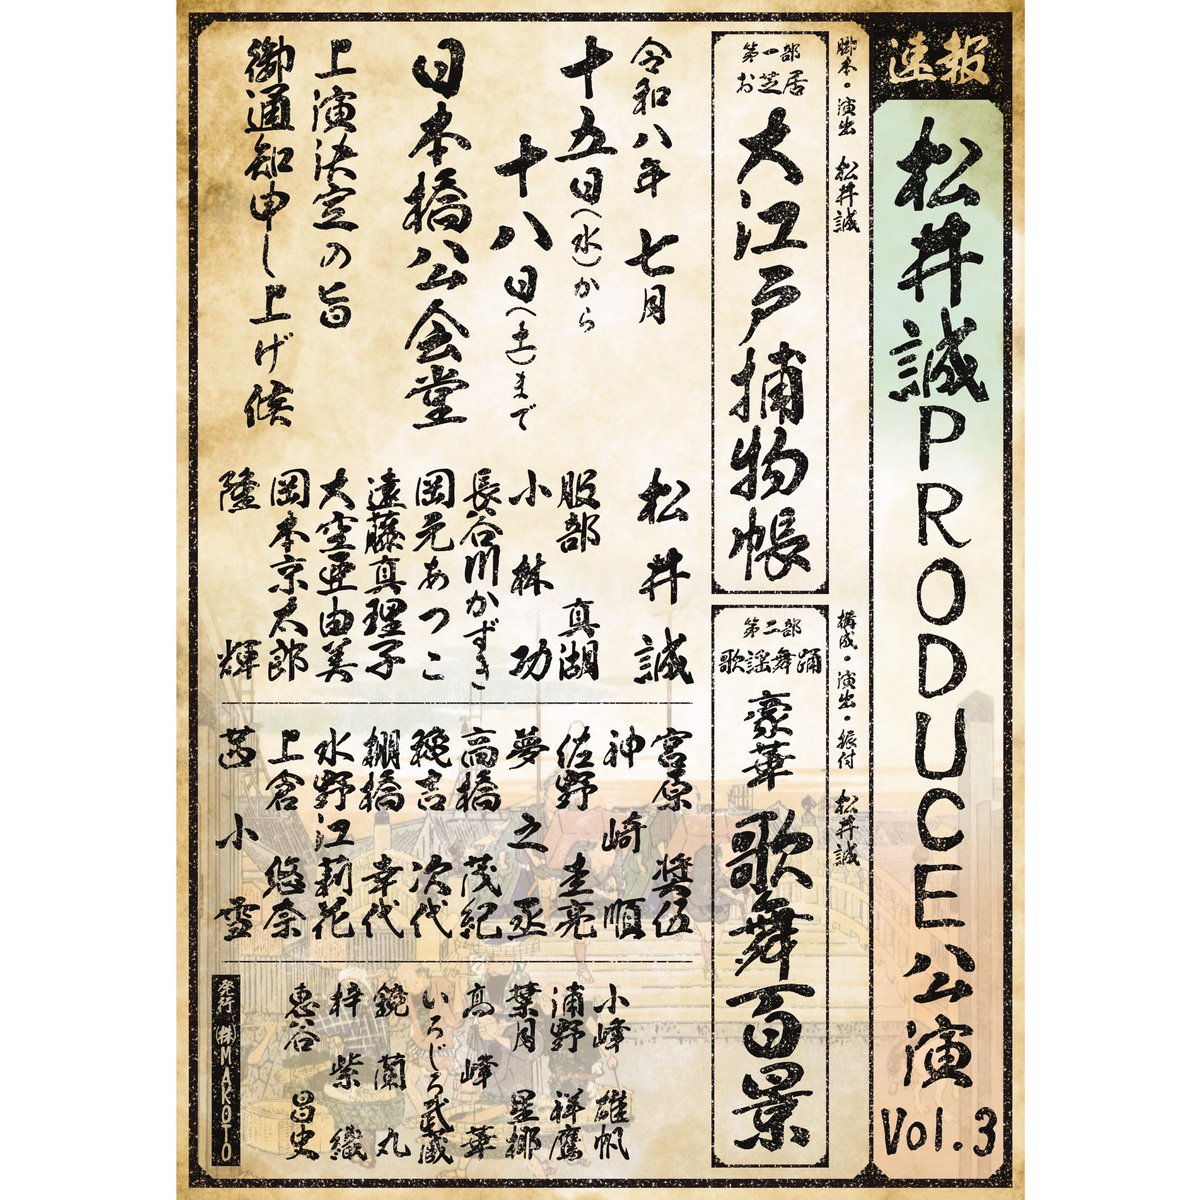 速報
松井誠PRODUCE公演 Vol.3
脚本・演出 松井誠
第一部
お芝居
大江戸捕物帳
構成・演出・振付 松井誠
第二部
歌謡舞踊
豪華 歌舞百景
令和八年 七月
十五日(水)から
十八日(土)まで
日本橋公会堂
上演決定の旨
御通知申し上げ候
松井誠
服部真湖
小林功
長谷川かずき
岡元あつこ
遠藤真理子
大空亜由美
岡本京太郎
隆輝
宮原奨伍
神崎順
佐野圭亮
夢之丞
高橋茂紀
穐吉次代
棚橋幸代
水野江莉花
上倉悠奈
茜小雪
小峰雄帆
浦野祥鷹
葉月星椰
高峰華
いろじろ武蔵
鏡蘭丸
梓紫織
恵谷昌史
発行 ㈱MAKOTO